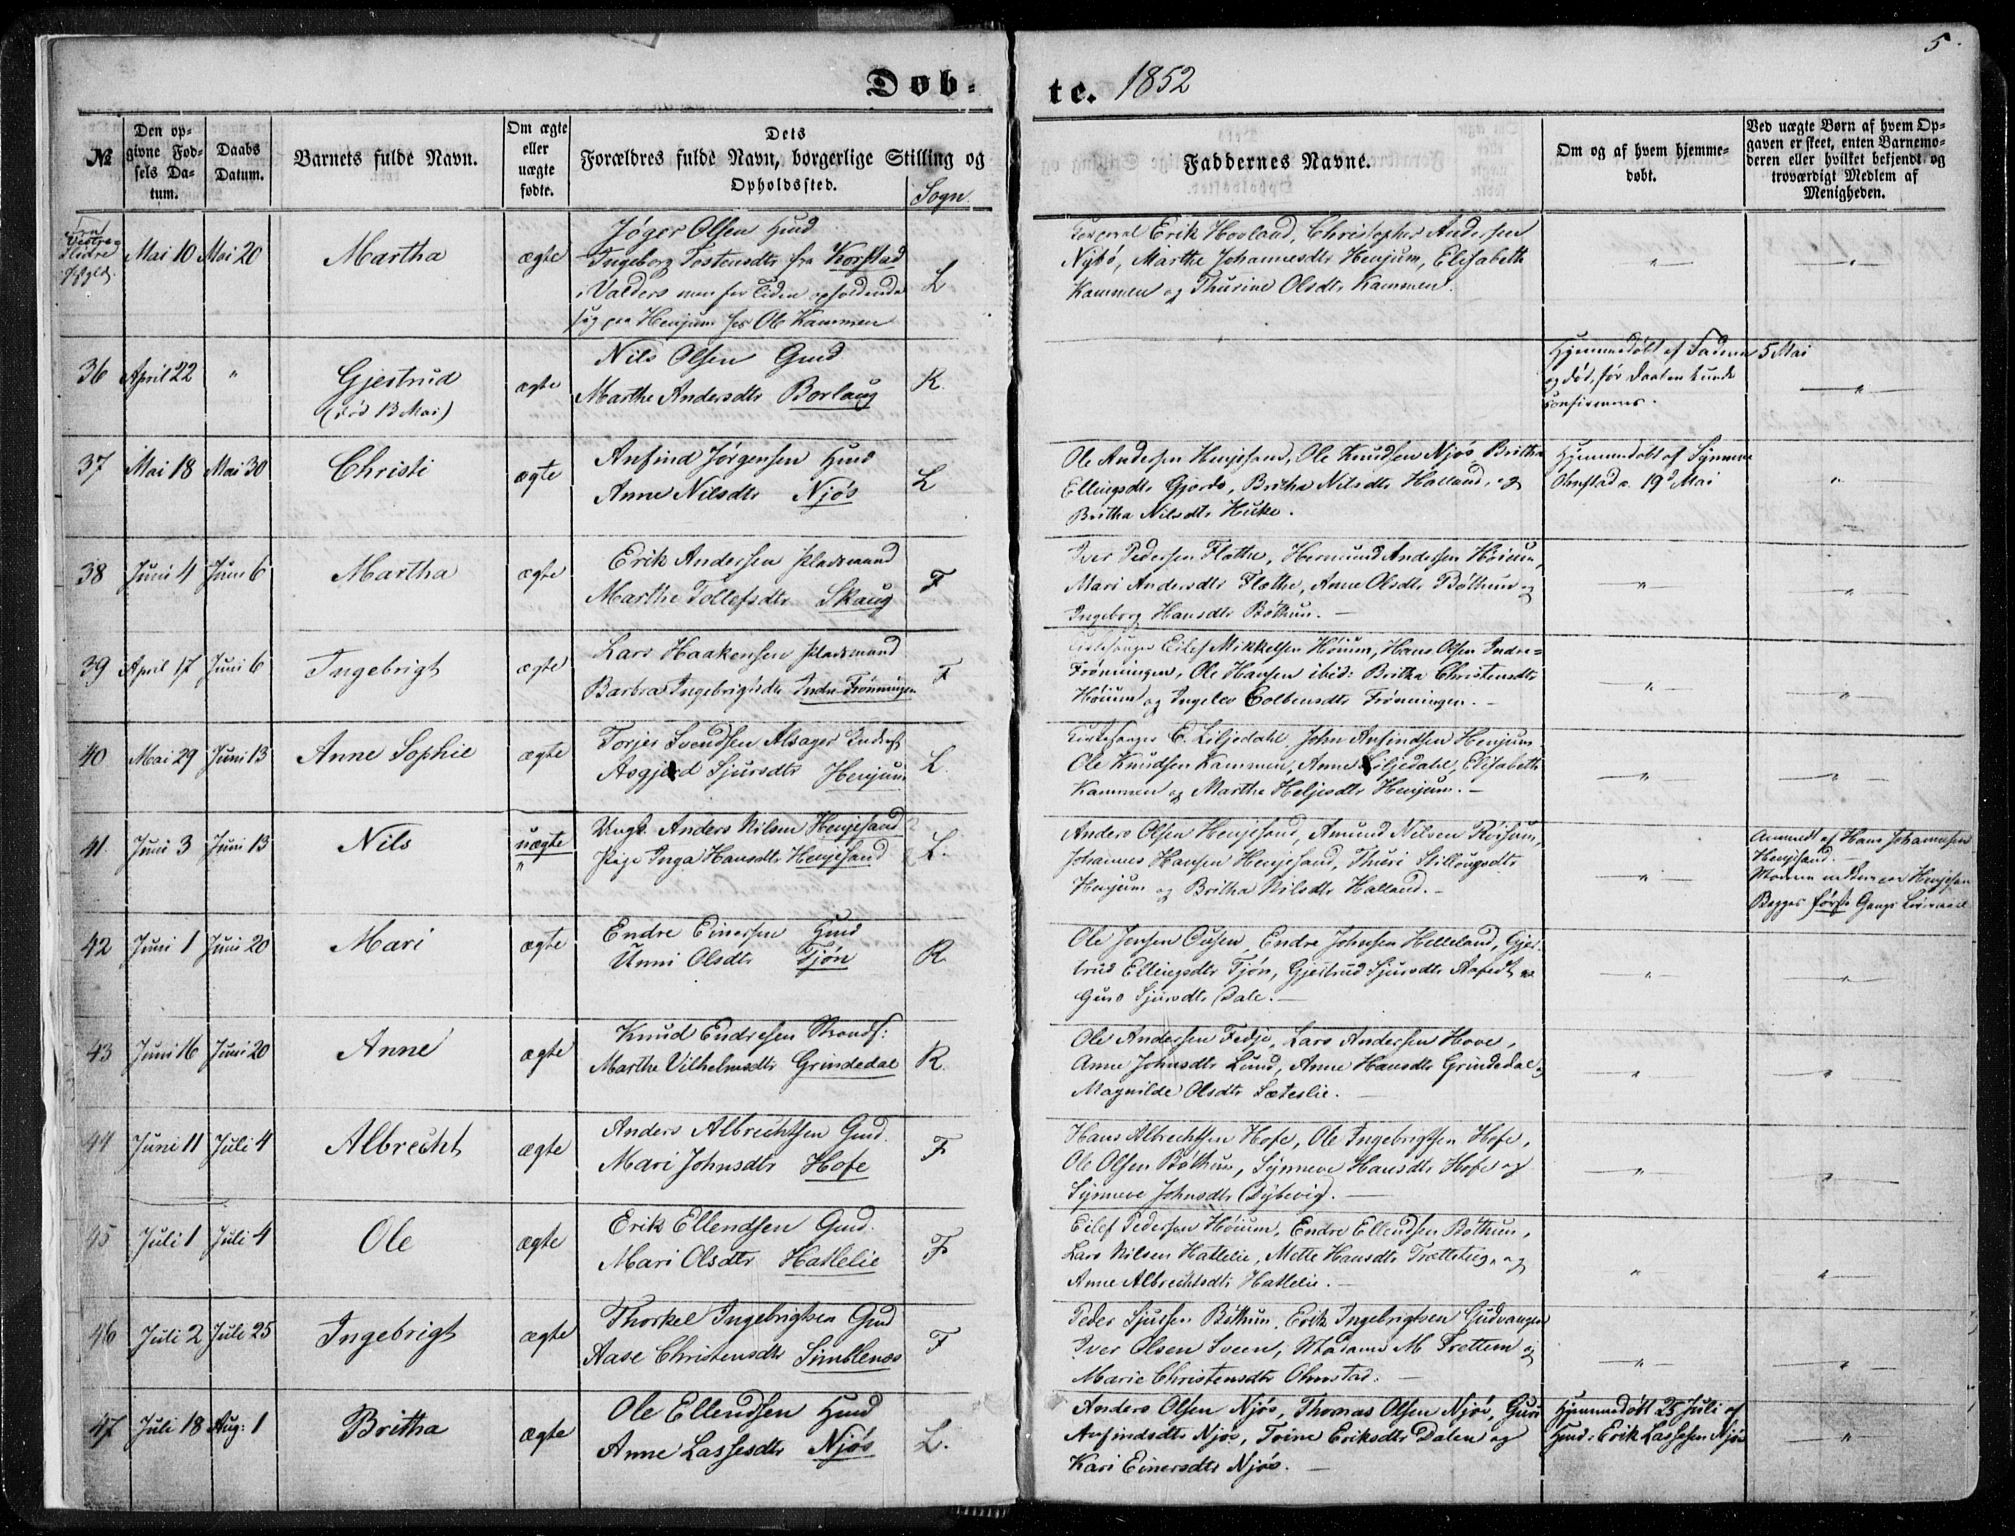 5.
Døb-
te. 1852
№
Den op-
givne Fød-
sels Da-
tum.
Daabs
Datum.
Barnets fulde Navn.
Om ægte
eller
uægte
fødte.
Dets
Forældres fulde Navn, borgerlige Stilling og
Opholdssted.
Sogn.
Faddernes Navne.
Om og af hvem hjemme-
døbt.
Ved uægte Børn af hvem Op-
gaven er skeet, enten Barnemo-
deren eller hvilket bekjendt og
troværdigt Medlem af
Menigheden.
Fra
Vestre
Slidre
Pgld.
Mai 10 Mai 20 Martha ægte
Jøger Olsen Huusd
Ingeborg Tostensdtr fra Korstad
i Valders men for Tiden opholdende
sig paa Henjum hos Ole Kammen
L
Erik Hovland, Christopher Andersen
Nybø, Marthe Johannesdtr Henjum, Elisabeth
Kammen og Thurine Olsdtr Kammen.
"
"
36 April 22 " Gjertrud
(død 13 Mai)
ægte
Nils Olsen Gmd
Marthe Andersdtr Borlaug
K.
Hjemmedøbt af Faderen 5 Mai
og død, før Daaben kunde
confirmeres.
"
37 Mai 18 Mai 30 Christi ægte
Anfind Jørgensen Huusd
Anne Nilsdtr Njøs
L
Ole Andersen Henjesand, Ole Knudsen Njøs, Britha
Ellingsdtr Gjerde, Britha Nilsdtr Halland, og
Britha Nilsdtr Huke.
Hjemmedøbt af Synneve
Ohnstad d. 19d Mai
"
38 Juni 4 Juni 6 Martha ægte
Erik Andersen Pladsmand
Marthe Tollefsdtr Skaug
F
Iver Pedersen Flathe, Hermund Andersen Høium,
Mari Andersdtr Flathe, Anne Olsdtr Bøthun og
Ingeborg Hansdtr Bøthun. —
"
"
39 April 17 Juni 6 Ingebrigt ægte
Lars Haakensen Pladsmand
Barbra Ingebrigtsdtr Indre Frønningen
F
Kirkesanger Eilef Mikkelsen Høium, Hans Olsen Indre=
Frønningen, Ole Hansen ibid: Britha Christensdtr
Høium og Ingelev Colbensdtr Frønningen. —
"
"
40 Mai 29 Juni 13 Anne Sophie ægte
Torjer Svendsen Alsager Inderst
Asgjerd Sjursdtr Henjum
L.
Kirkesanger E. Liljedahl, John Anfindsen Henjum
Ole Knudsen Kammen, Anne Liljedahl, Elisabeth
Kammen og Marthe Heljesdtr Henjum. —
"
"
41 Juni 3 Juni 13 Nils uægte
"
Ungk. Anders Nilsen Henjesand
Pige Inga Hansdtr Henjesand
L.
Anders Olsen Henjesand, Amund Nilsen Røysum,
Johannes Hansen Henjesand, Thuri Stillougsdtr
Henjum og Britha Nilsdtr Halland. —
"
Anmeldt af Hans Johannesen
Henjesand. —
Begges første Gangs Leiermaal
42 Juni 1 Juni 20 Mari ægte
Endre Einersen Huusd
Unni Olsdtr Tjøn
R.
Ole Jensen Øusen, Endre Johnsen Helleland, Gjer-
trud Ellingsdtr Tjøn, Gjertrud Sjursdtr Aafedt og
Guro Sjursdtr Dale. —
"
"
43 Juni 16 Juni 20 Anne ægte
Knud Endresen Strands:
Marthe Vilhelmsdtr Grindedal
R.
Ole Andersen Fedje, Lars Andersen Hove,
Anne Johnsdtr Lund, Anne Hansdtr Grindedal og
Magnilde Olsdtr Sæteslie. —
"
"
44 Juni 11 Juli 4 Albrecht ægte
Anders Albrechtsen Gmd.
Mari Johnsdtr Hofe
F.
Hans Albrechtsen Hofe, Ole Ingebrigtsen Hofe,
Ole Olsen Bøthun, Synneve Hansdtr Hofe og
Synneve Johnsdtr Dybevig. —
"
"
45 Juli 1 Juli 4 Ole ægte
Erik Ellendsen Gmd.
Mari Olsdtr Hatlelie
F.
Eilef Pedersen Høium, Endre Ellendsen Bøthun,
Lars Nilsen Hatlelie, Mette Hansdtr Trætteteig, og
Anne Albrechtsdtr Hatlelie. —
"
"
46 Juli 2 Juli 25 Ingebrigt ægte
Thorkel Ingebrigtsen Gmd
Aase Christensdtr Simblenes
F
Peder Sjursen Bøthun, Erik Ingebrigtsen Gudvangen
Iver Olsen Sveen, Madame M. Frettem og
Marie Christensdtr Ohnstad. —
"
"
47 Juli 18 Aug: 1 Britha ægte
Ole Ellendsen Huusd
Anne Lassesdtr Njøs
L.
Anders Olsen Njøs, Thomas Olsen Njøs, Guri
Anfindsdtr Njøs, Trine Eriksdtr Dalen og
Kari Einersdtr Njøs. —
Hjemmedøbt 25 Juli af
Huusd: Erik Lassesen Njøs
"